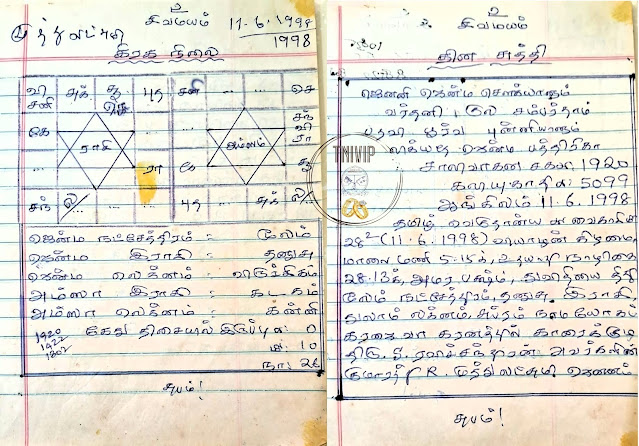 உ
சிவமயம்
11-6-1998
1998
கிரக நிலை
வி
சனி
சுக்
சூ
புத
சன்
...
...
செ
கே
ராசி
...
...
அம்சம்
சந்
வி
ரா
...
ரா
கே
சூ
சந்
ல/
...
...
புத
...
சுக்
ல/
ஜென்ம நட்சேத்திரம் : மூலம்
ஜென்ம இராசி : தனுசு
ஜென்ம லெக்னம் : விருச்சிகம்
அம்ஸா இராசி : கடகம்
அம்ஸா லெக்னம் : கன்னி
1920
1922
1802
கேது திசையில் இருப்பு வ: 0
மா. 10
நா: 26
சுபம்!
உ
சிவமயம்
தின சுத்தி
ஜெனனி ஜென்ம சௌக்யானாம்
வர்தனி, குல சம்பதாம்
பதவி பூர்வ புண்ணியானாம்
லிக்யதே ஜென்ம பத்திரிகா
சாலிவாகன சகவ: 1920
கலியுகாதிவ: 5099
ஆங்கிலம் 11.6.1998
தமிழ் வெகுதான்ய வைகாசி
28உ (11.6.1998) வியாழன் கிழமை
மாலை மணி 5-15க்கு, உதயாதி நாழிகை
28-13க்கு, அமர பக்ஷம், துவிதியை திதி
மூலம் நட்சேத்திரம், தனுசு இராசி
துலாம் லக்னம், சுபரம் நாம யோகம்
கரசை வா கரணத்தில் காரைக்குடி
திரு. S. ரவிச்சந்திரன் அவர்களின்
குமாரத்தி R. முத்துலட்சுமி ஜெனனம்
சுபம்!
TNIVIP